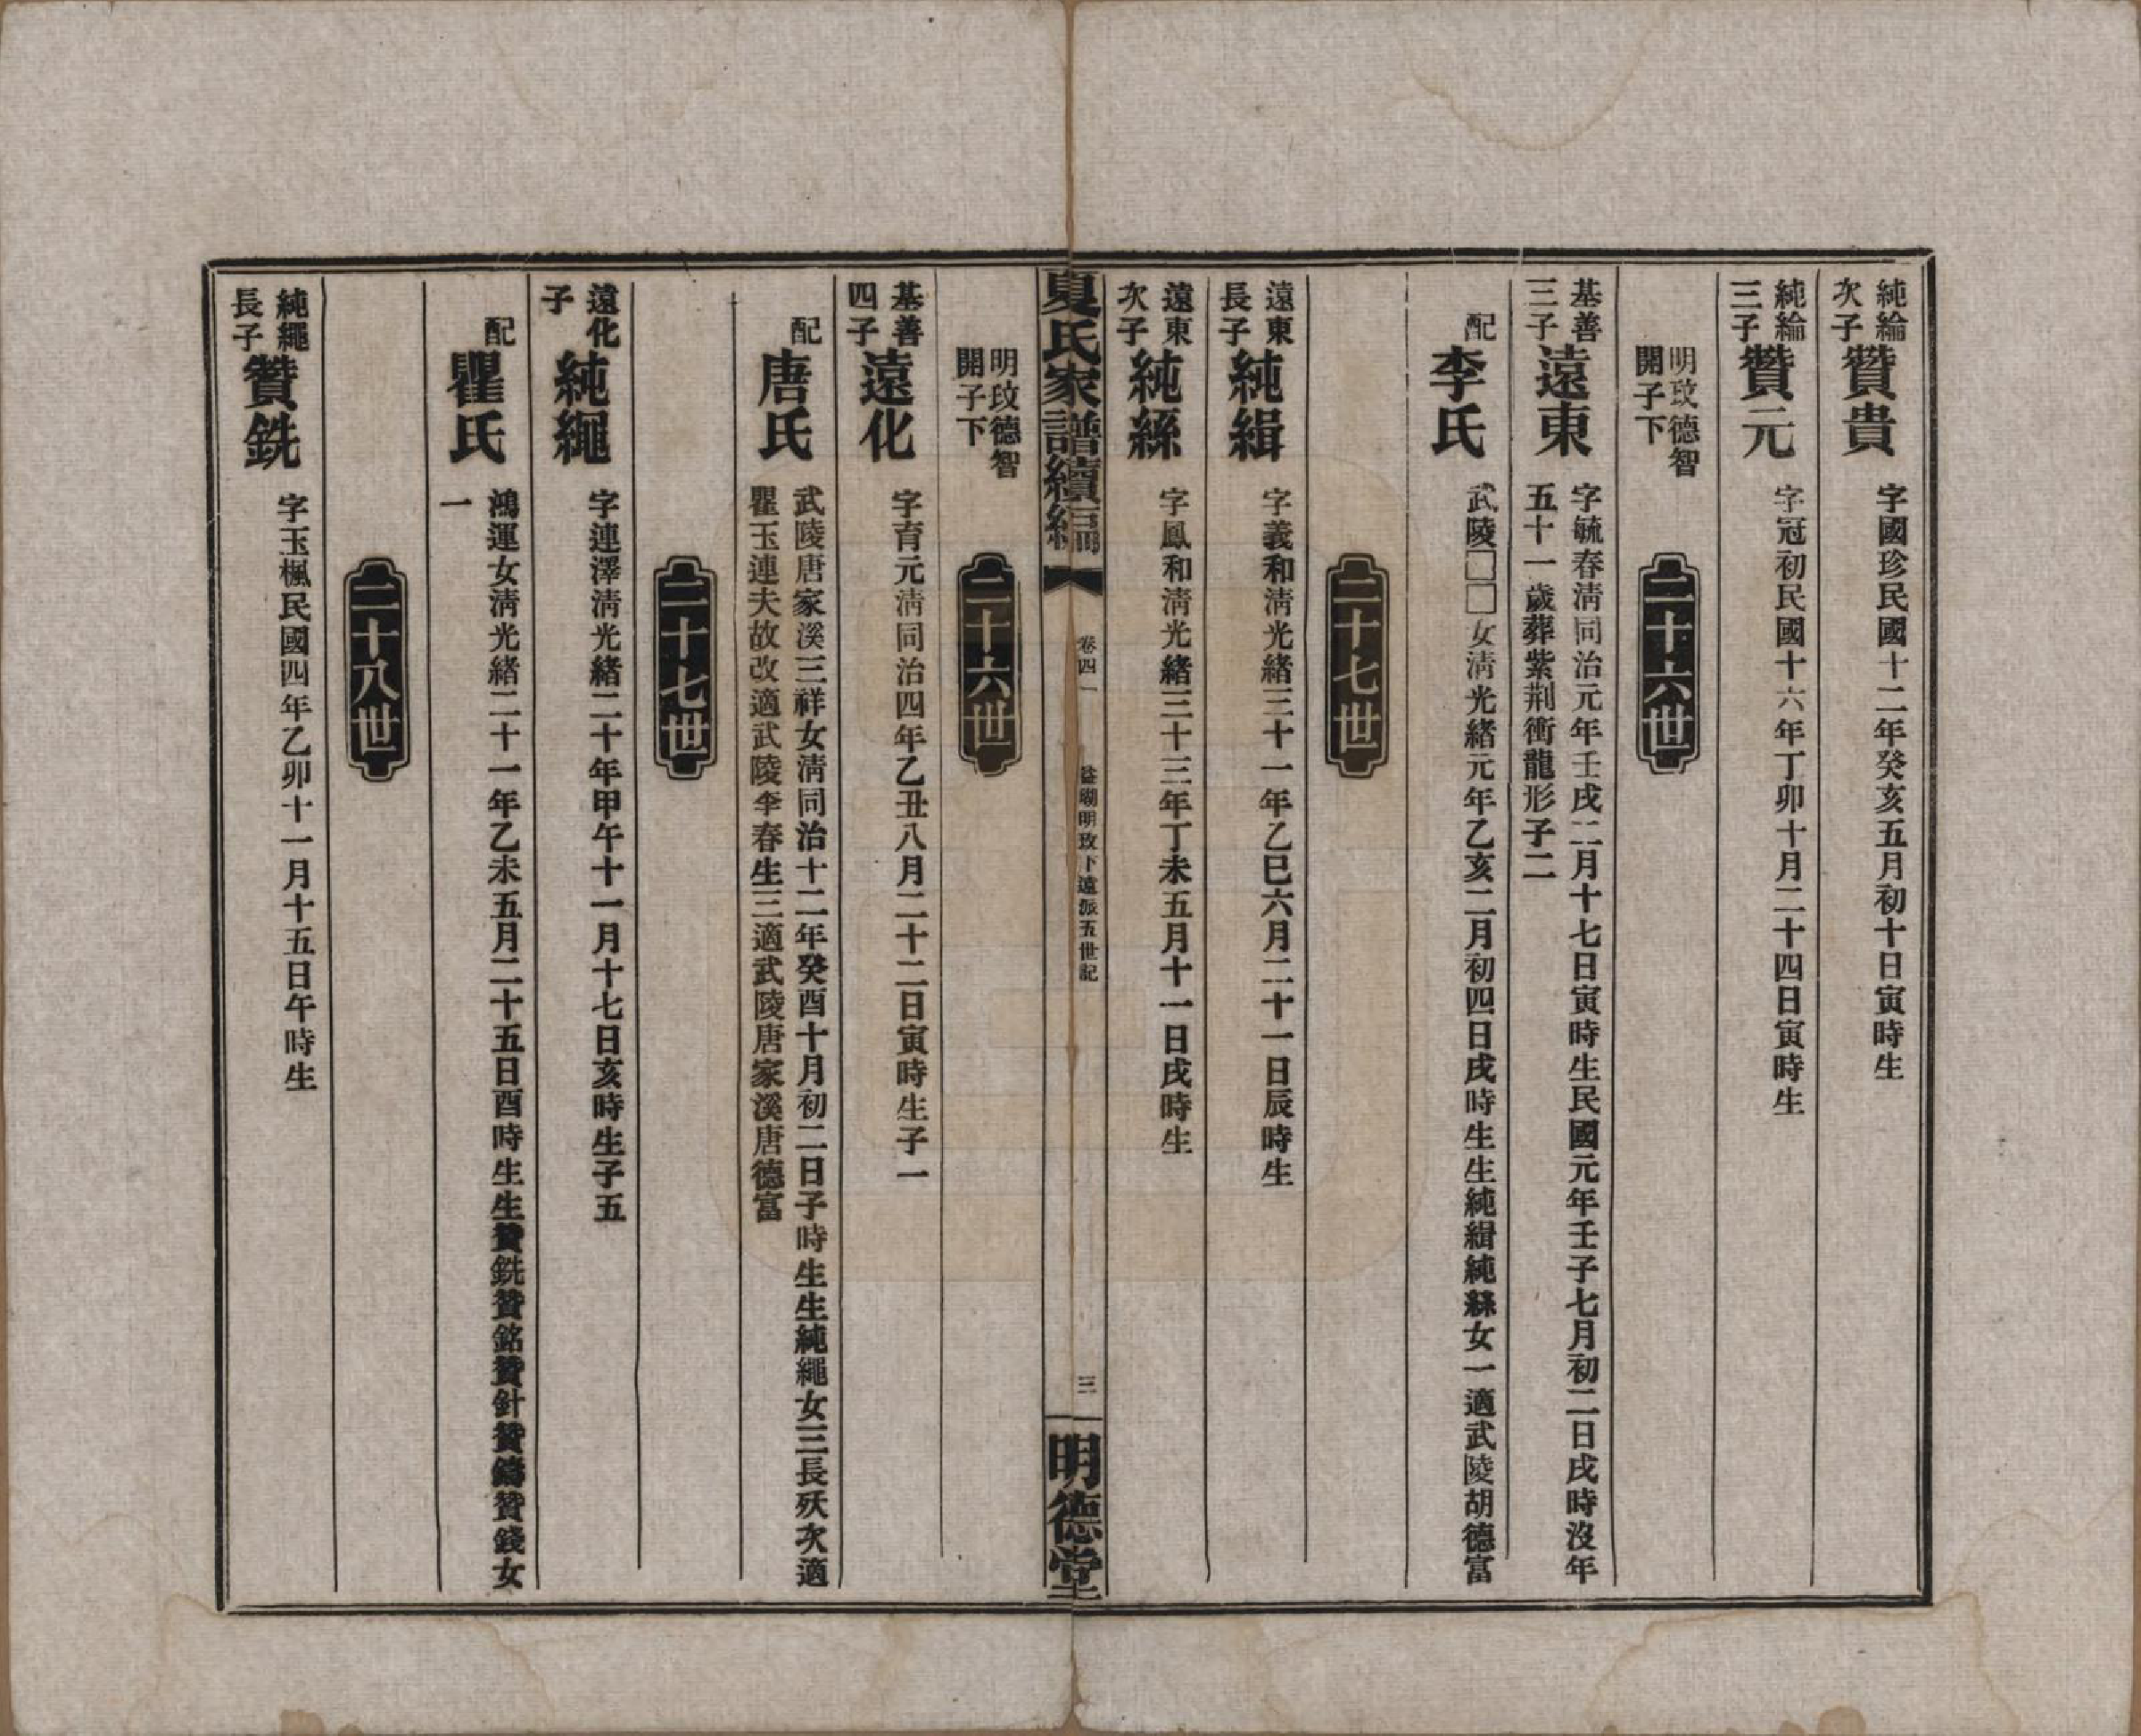 純綸次子 贊貴 字國珍民國十二年癸亥五月初十日寅時生
純綸三子 贊元 字冠初民國十六年丁卯十月二十四日寅時生
明玟德智開子下
二十六世
基善三子 遠東 字毓春淸同治元年壬戌二月十七日寅時生民國元年壬子七月初二日戌時沒年
五十一歲葬紫荆衝龍形子二
配 李氏 武陵□□女淸光緒元年乙亥二月初四日戌時生生純緝純絲女一適武陵胡德富
二十七世
遠東長子 純緝 字義和淸光緒三十一年乙巳六月二十一日辰時生
遠東次子 純絲 字鳳和淸光緒三十三年丁未五月十一日戌時生
夏氏家譜續編 卷四 明玟下遠派五世記 三 明德堂
明玟德智開子下
二十六世
基善四子 遠化 字育元淸同治四年乙丑八月二十二日寅時生子一
配 唐氏 武陵唐家溪三祥女淸同治十二年癸酉十月初二日子時生生純繩女三長殀次適
瞿玉連夫故改適武陵李春生三適武陵唐家溪唐德富
二十七世
遠化子 純繩 字連澤淸光緒二十年甲午十一月十七日亥時生子五
配 瞿氏 鴻運女淸光緒二十一年乙未五月二十五日酉時生生贊銑贊銘贊針贊鑄贊錢女
一
二十八世
純繩長子 贊銑 字玉楓民國四年乙卯十一月十五日午時生